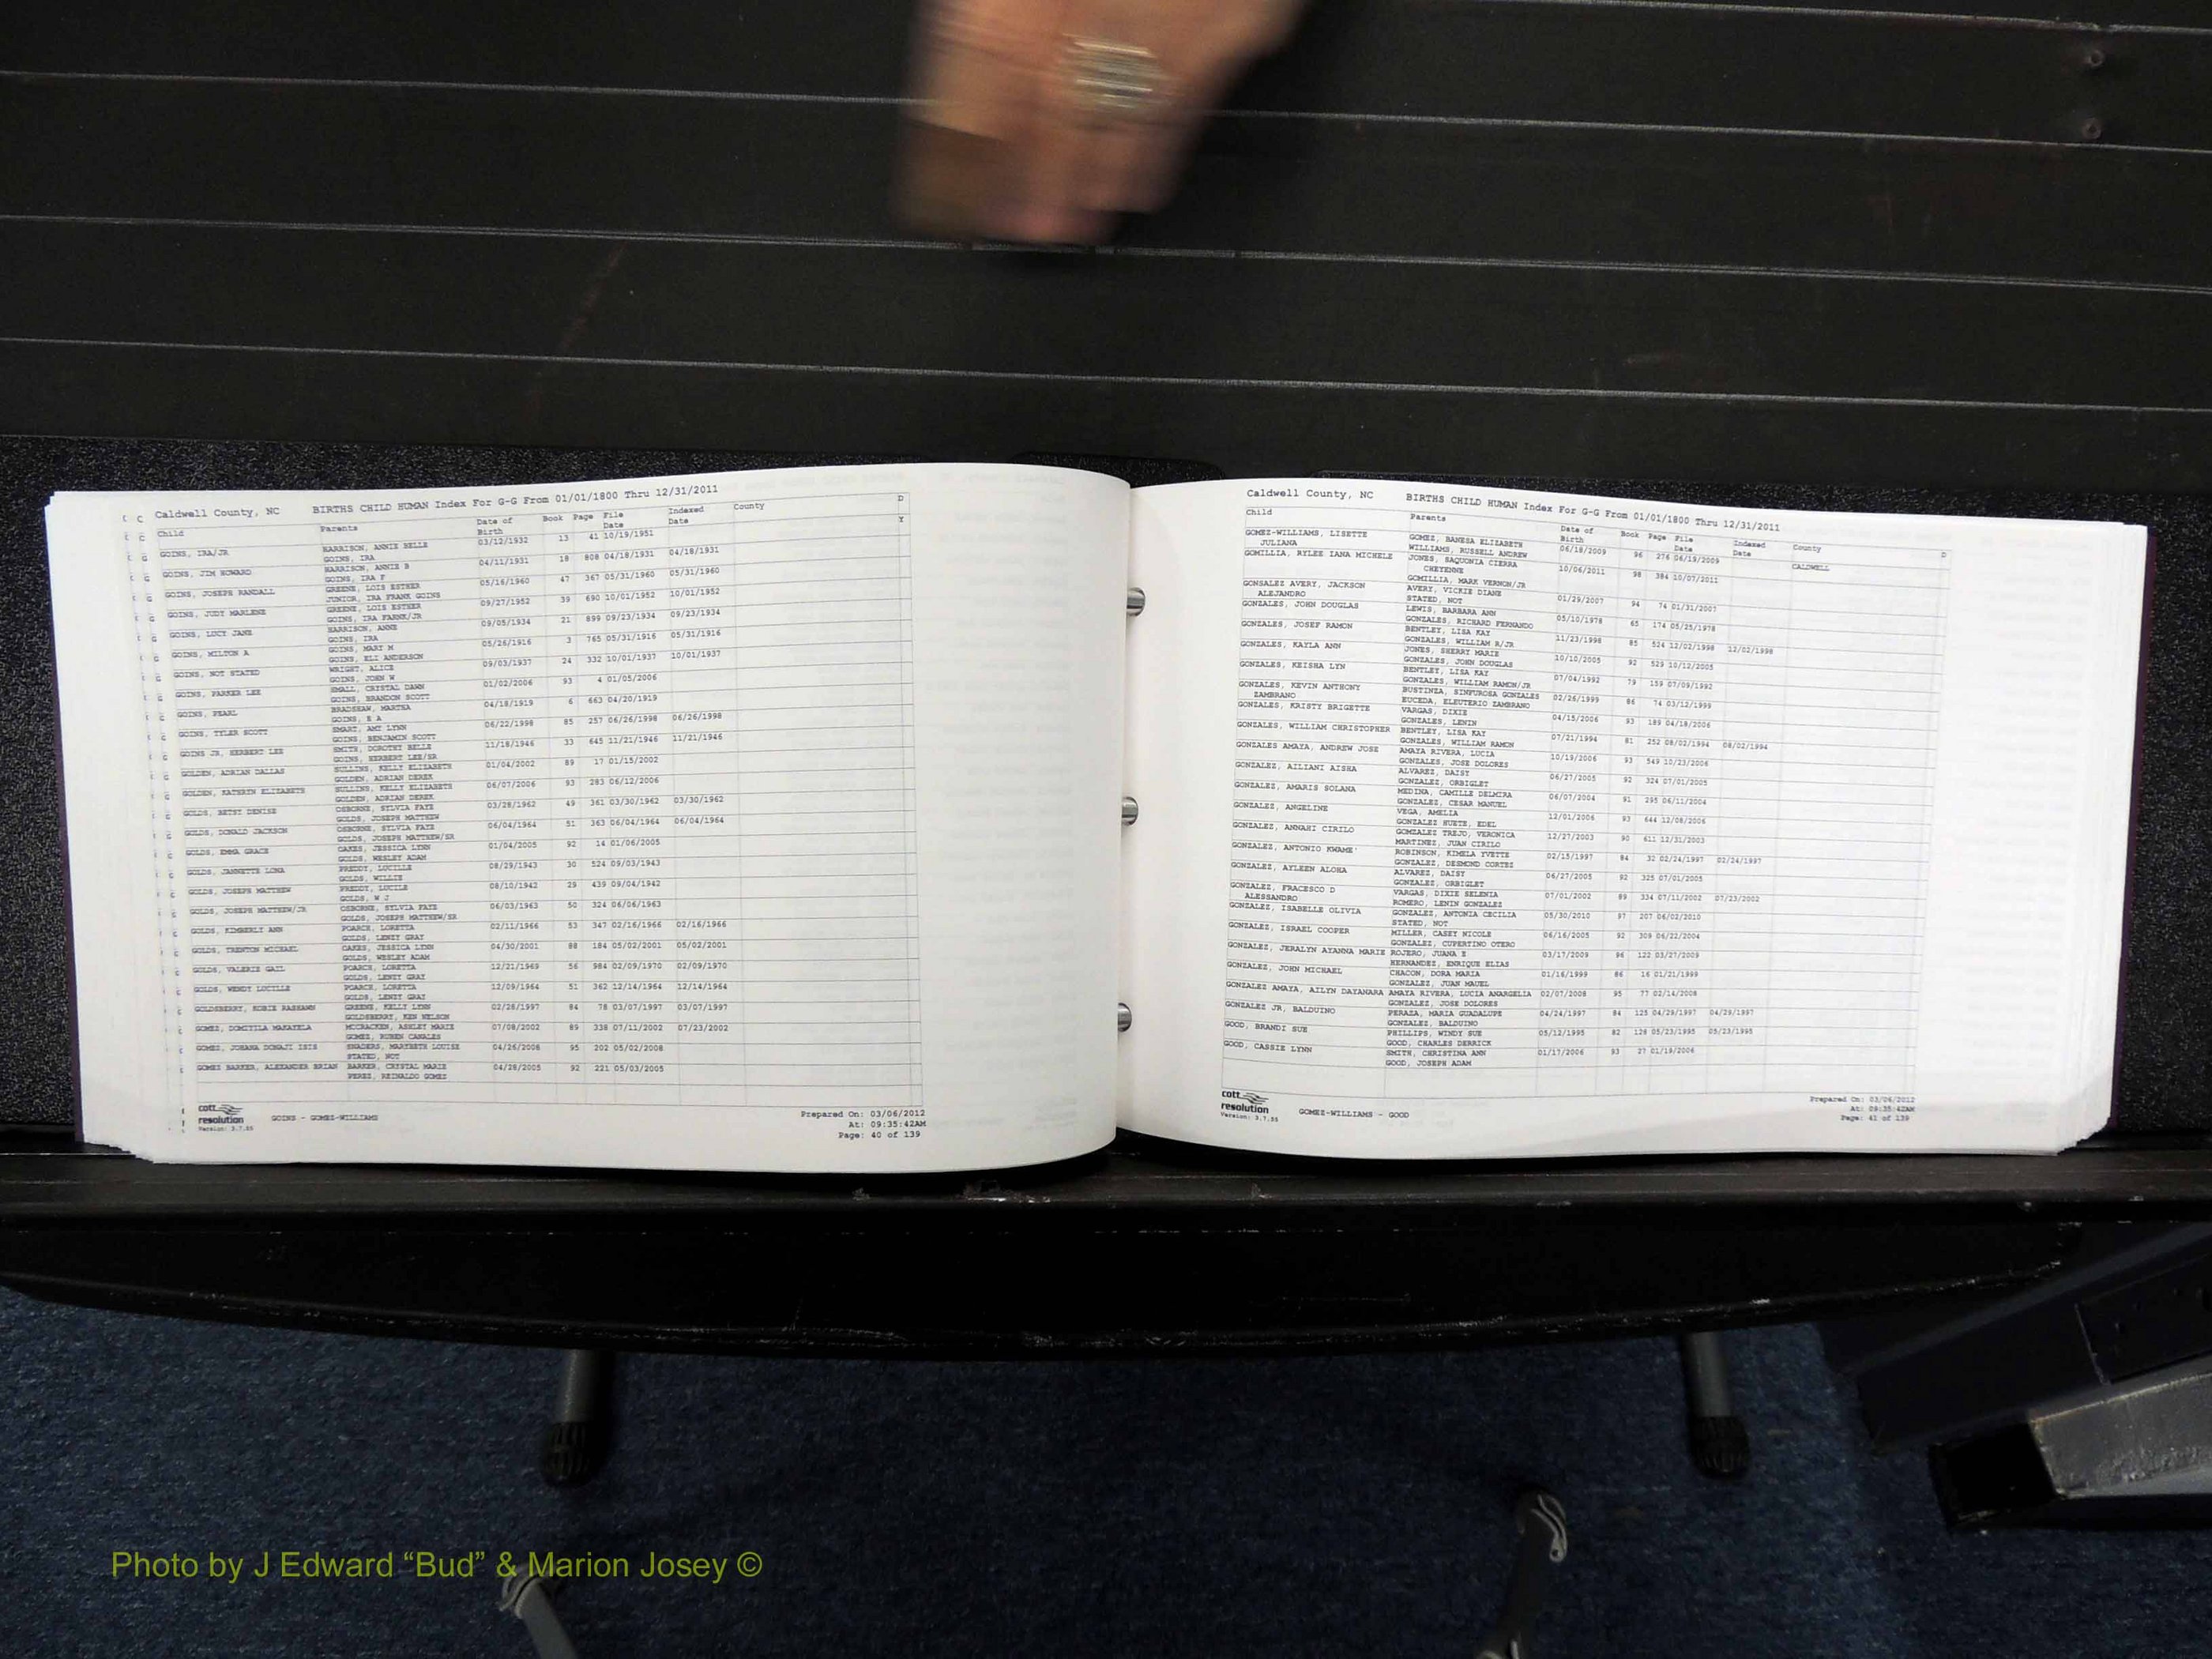 Caldwell County, NC BIRTHS CHILD HUMAN Index For G-G From 01/01/1800 Thru 12/31/2011
Child Parents Date of Birth Book Page File Date Indexed Date County
GOINS, IRA/JR HARRISON, ANNIE BELLE 03/12/1932 13 41 10/19/1951
GOINS, IRA
GOINS, JIM HOWARD HARRISON, ANNIE B 04/11/1931 18 808 04/18/1931 04/18/1931
GOINS, IRA F
GOINS, JOSEPH RANDALL GREENE, LOIS ESTHER 05/16/1960 47 367 05/31/1960 05/31/1960
JUNIOR, IRA FRANK GOINS
GOINS, JUDY MARLENE GREENE, LOIS ESTHER 09/27/1952 39 690 10/01/1952 10/01/1952
GOINS, IRA FARNK/JR
GOINS, LUCY JANE HARRISON, ANNE 09/05/1934 21 899 09/23/1934 09/23/1934
GOINS, IRA
GOINS, MILTON A GOINS, MARY M 05/26/1916 3 765 05/31/1916 05/31/1916
GOINS, ELI ANDERSON
GOINS, NOT STATED WRIGHT, ALICE 09/03/1937 24 332 10/01/1937 10/01/1937
GOINS, JOHN W
GOINS, PARKER LEE SMALL, CRYSTAL DAWN 01/02/2006 93 4 01/05/2006
GOINS, BRANDON SCOTT
GOINS, PEARL BRADSHAW, MARTHA 04/18/1919 6 663 04/20/1919
GOINS, E A
GOINS, TYLER SCOTT SMART, AMY LYNN 06/22/1998 85 257 06/26/1998 06/26/1998
GOINS, BENJAMIN SCOTT
GOINS JR, HERBERT LEE SMITH, DOROTHY BELLE 11/18/1946 33 645 11/21/1946 11/21/1946
GOINS, HERBERT LEE/SR
GOLDEN, ADRIAN DALLAS SULLINS, KELLY ELIZABETH 01/04/2002 89 17 01/15/2002
GOLDEN, ADRIAN DEREK
GOLDEN, KATHRYN ELIZABETH SULLINS, KELLY ELIZABETH 06/07/2006 93 283 06/12/2006
GOLDEN, ADRIAN DEREK
GOLDS, BETSY DENISE OSBORNE, SYLVIA FAYE 03/28/1962 49 361 03/30/1962 03/30/1962
GOLDS, JOSEPH MATTHEW
GOLDS, DONALD JACKSON OSBORNE, SYLVIA FAYE 06/04/1964 51 363 06/04/1964 06/04/1964
GOLDS, JOSEPH MATTHEW/SR
GOLDS, EMMA GRACE OAKES, JESSICA LYNN 01/04/2005 92 14 01/06/2005
GOLDS, WESLEY ADAM
GOLDS, JANNETTE LONA PREDDY, LUCILLE 08/29/1943 30 524 09/03/1943
GOLDS, WILLIE
GOLDS, JOSEPH MATTHEW PREDDY, LUCILE 08/10/1942 29 439 09/04/1942
GOLDS, W J
GOLDS, JOSEPH MATTHEW/JR OSBORNE, SYLVIA FAYE 06/03/1963 50 324 06/06/1963
GOLDS, JOSEPH MATTHEW/SR
GOLDS, KIMBERLY ANN POARCH, LORETTA 02/11/1966 53 347 02/16/1966 02/16/1966
GOLDS, LENZY GRAY
GOLDS, TRENTON MICHAEL OAKES, JESSICA LYNN 04/30/2001 88 184 05/02/2001 05/02/2001
GOLDS, WESLEY ADAM
GOLDS, VALERIE GAIL POARCH, LORETTA 12/21/1969 56 984 02/09/1970 02/09/1970
GOLDS, LENZY GRAY
GOLDS, WENDY LUCILLE POARCH, LORETTA 12/09/1964 51 362 12/14/1964 12/14/1964
GOLDS, LENZY GRAY
GOLDSBERRY, ROBIE RASHAWN GREENE, KELLY LYNN 02/28/1997 84 78 03/07/1997 03/07/1997
GOLDSBERRY, KEN NELSON
GOMEZ, DOMITILA MAKAYELA MCCRACKEN, ASHLEY MARIE 07/08/2002 89 338 07/11/2002 07/23/2002
GOMEZ, RUBEN CANALES
GOMEZ, JOHANA DONAJI ISIS SHADERS, MARYBETH LOUISE 04/26/2008 95 202 05/02/2008
STATED, NOT
GOMEZ BARKER, ALEXANDER BRIAN BARKER, CRYSTAL MARIE 04/28/2005 92 221 05/03/2005
PEREZ, REINALDO GOMEZ
cott resolution
Version: 3.7.55
GOINS - GOMEZ-WILLIAMS
Prepared On: 03/06/2012
At: 09:35:42AM
Page: 40 of 139
Caldwell County, NC BIRTHS CHILD HUMAN Index For G-G From 01/01/1800 Thru 12/31/2011
Child Parents Date of Birth Book Page File Date Indexed Date County
GOMEZ-WILLIAMS, LISETTE JULIANA GOMEZ, BANESA ELIZABETH 06/18/2009 96 276 06/19/2009 CALDWELL
WILLIAMS, RUSSELL ANDREW
GOMILLIA, RYLEE IANA MICHELE JONES, SAQUONIA CIERRA CHEYENNE 10/06/2011 98 384 10/07/2011
GOMILLIA, MARK VERNON/JR
GONSALEZ AVERY, JACKSON ALEJANDRO AVERY, VICKIE DIANE 01/29/2007 94 74 01/31/2007
STATED, NOT
GONZALES, JOHN DOUGLAS LEWIS, BARBARA ANN 05/10/1978 65 174 05/25/1978
GONZALES, RICHARD FERNANDO
GONZALES, JOSEF RAMON BENTLEY, LISA KAY 11/23/1998 85 524 12/02/1998 12/02/1998
GONZALES, WILLIAM R/JR
GONZALES, KAYLA ANN JONES, SHERRY MARIE 10/10/2005 92 529 10/12/2005
GONZALES, JOHN DOUGLAS
GONZALES, KEISHA LYN BENTLEY, LISA KAY 07/04/1992 79 159 07/09/1992
GONZALES, WILLIAM RAMON/JR
GONZALES, KEVIN ANTHONY ZAMBRANO BUSTINZA, SINFUROSA GONZALES 02/26/1999 86 74 03/12/1999
EUCEDA, ELEUTERIO ZAMBRANO
GONZALES, KRISTY BRIGETTE VARGAS, DIXIE 04/15/2006 93 189 04/18/2006
GONZALES, LENIN
GONZALES, WILLIAM CHRISTOPHER BENTLEY, LISA KAY 07/21/1994 81 252 08/02/1994 08/02/1994
GONZALES, WILLIAM RAMON
GONZALES AMAYA, ANDREW JOSE AMAYA RIVERA, LUCIA 10/19/2006 93 549 10/23/2006
GONZALES, JOSE DOLORES
GONZALEZ, AILIANI AISHA ALVAREZ, DAISY 06/27/2005 92 324 07/01/2005
GONZALEZ, ORBIGLET
GONZALEZ, AMARIS SOLANA MEDINA, CAMILLE DELMIRA 06/07/2004 91 295 06/11/2004
GONZALEZ, CESAR MANUEL
GONZALEZ, ANGELINE VEGA, AMELIA 12/01/2006 93 644 12/08/2006
GONZALEZ HUETE, EDEL
GONZALEZ, ANNAHI CIRILO GOMZALEZ TREJO, VERONICA 12/27/2003 90 611 12/31/2003
MARTINEZ, JUAN CIRILO
GONZALEZ, ANTONIO KWAME' ROBINSON, KIMELA YVETTE 02/15/1997 84 32 02/24/1997 02/24/1997
GONZALEZ, DESMOND CORTEZ
GONZALEZ, AYLEEN ALOHA ALVAREZ, DAISY 06/27/2005 92 325 07/01/2005
GONZALEZ, ORBIGLET
GONZALEZ, FRACESCO D ALESSANDRO VARGAS, DIXIE SELENIA 07/01/2002 89 334 07/11/2002 07/23/2002
ROMERO, LENIN GONZALEZ
GONZALEZ, ISABELLE OLIVIA GONZALEZ, ANTONIA CECILIA 05/30/2010 97 207 06/02/2010
STATED, NOT
GONZALEZ, ISRAEL COOPER MILLER, CASEY NICOLE 06/16/2005 92 309 06/22/2004
GONZALEZ, CUPERTINO OTERO
GONZALEZ, JERALYN AYANNA MARIE ROJERO, JUANA E 03/17/2009 96 122 03/27/2009
HERNANDEZ, ENRIQUE ELIAS
GONZALEZ, JOHN MICHAEL CHACON, DORA MARIA 01/16/1999 86 16 01/21/1999
GONZALEZ, JUAN MAUEL
GONZALEZ AMAYA, AILYN DAYANARA AMAYA RIVERA, LUCIA ANARGELIA 02/07/2008 95 77 02/14/2008
GONZALEZ, JOSE DOLORES
GONZALEZ JR, BALDUINO PERAZA, MARIA GUADALUPE 04/24/1997 84 125 04/29/1997 04/29/1997
GONZALEZ, BALDUINO
GOOD, BRANDI SUE PHILLIPS, WINDY SUE 05/12/1995 82 128 05/23/1995 05/23/1995
GOOD, CHARLES DERRICK
GOOD, CASSIE LYNN SMITH, CHRISTINA ANN 01/17/2006 93 27 01/19/2006
GOOD, JOSEPH ADAM
cott resolution
Version: 3.7.55
GOMEZ-WILLIAMS - GOOD
Prepared On: 03/06/2012
At: 09:35:42AM
Page: 41 of 139
Photo by J Edward “Bud” & Marion Josey ©